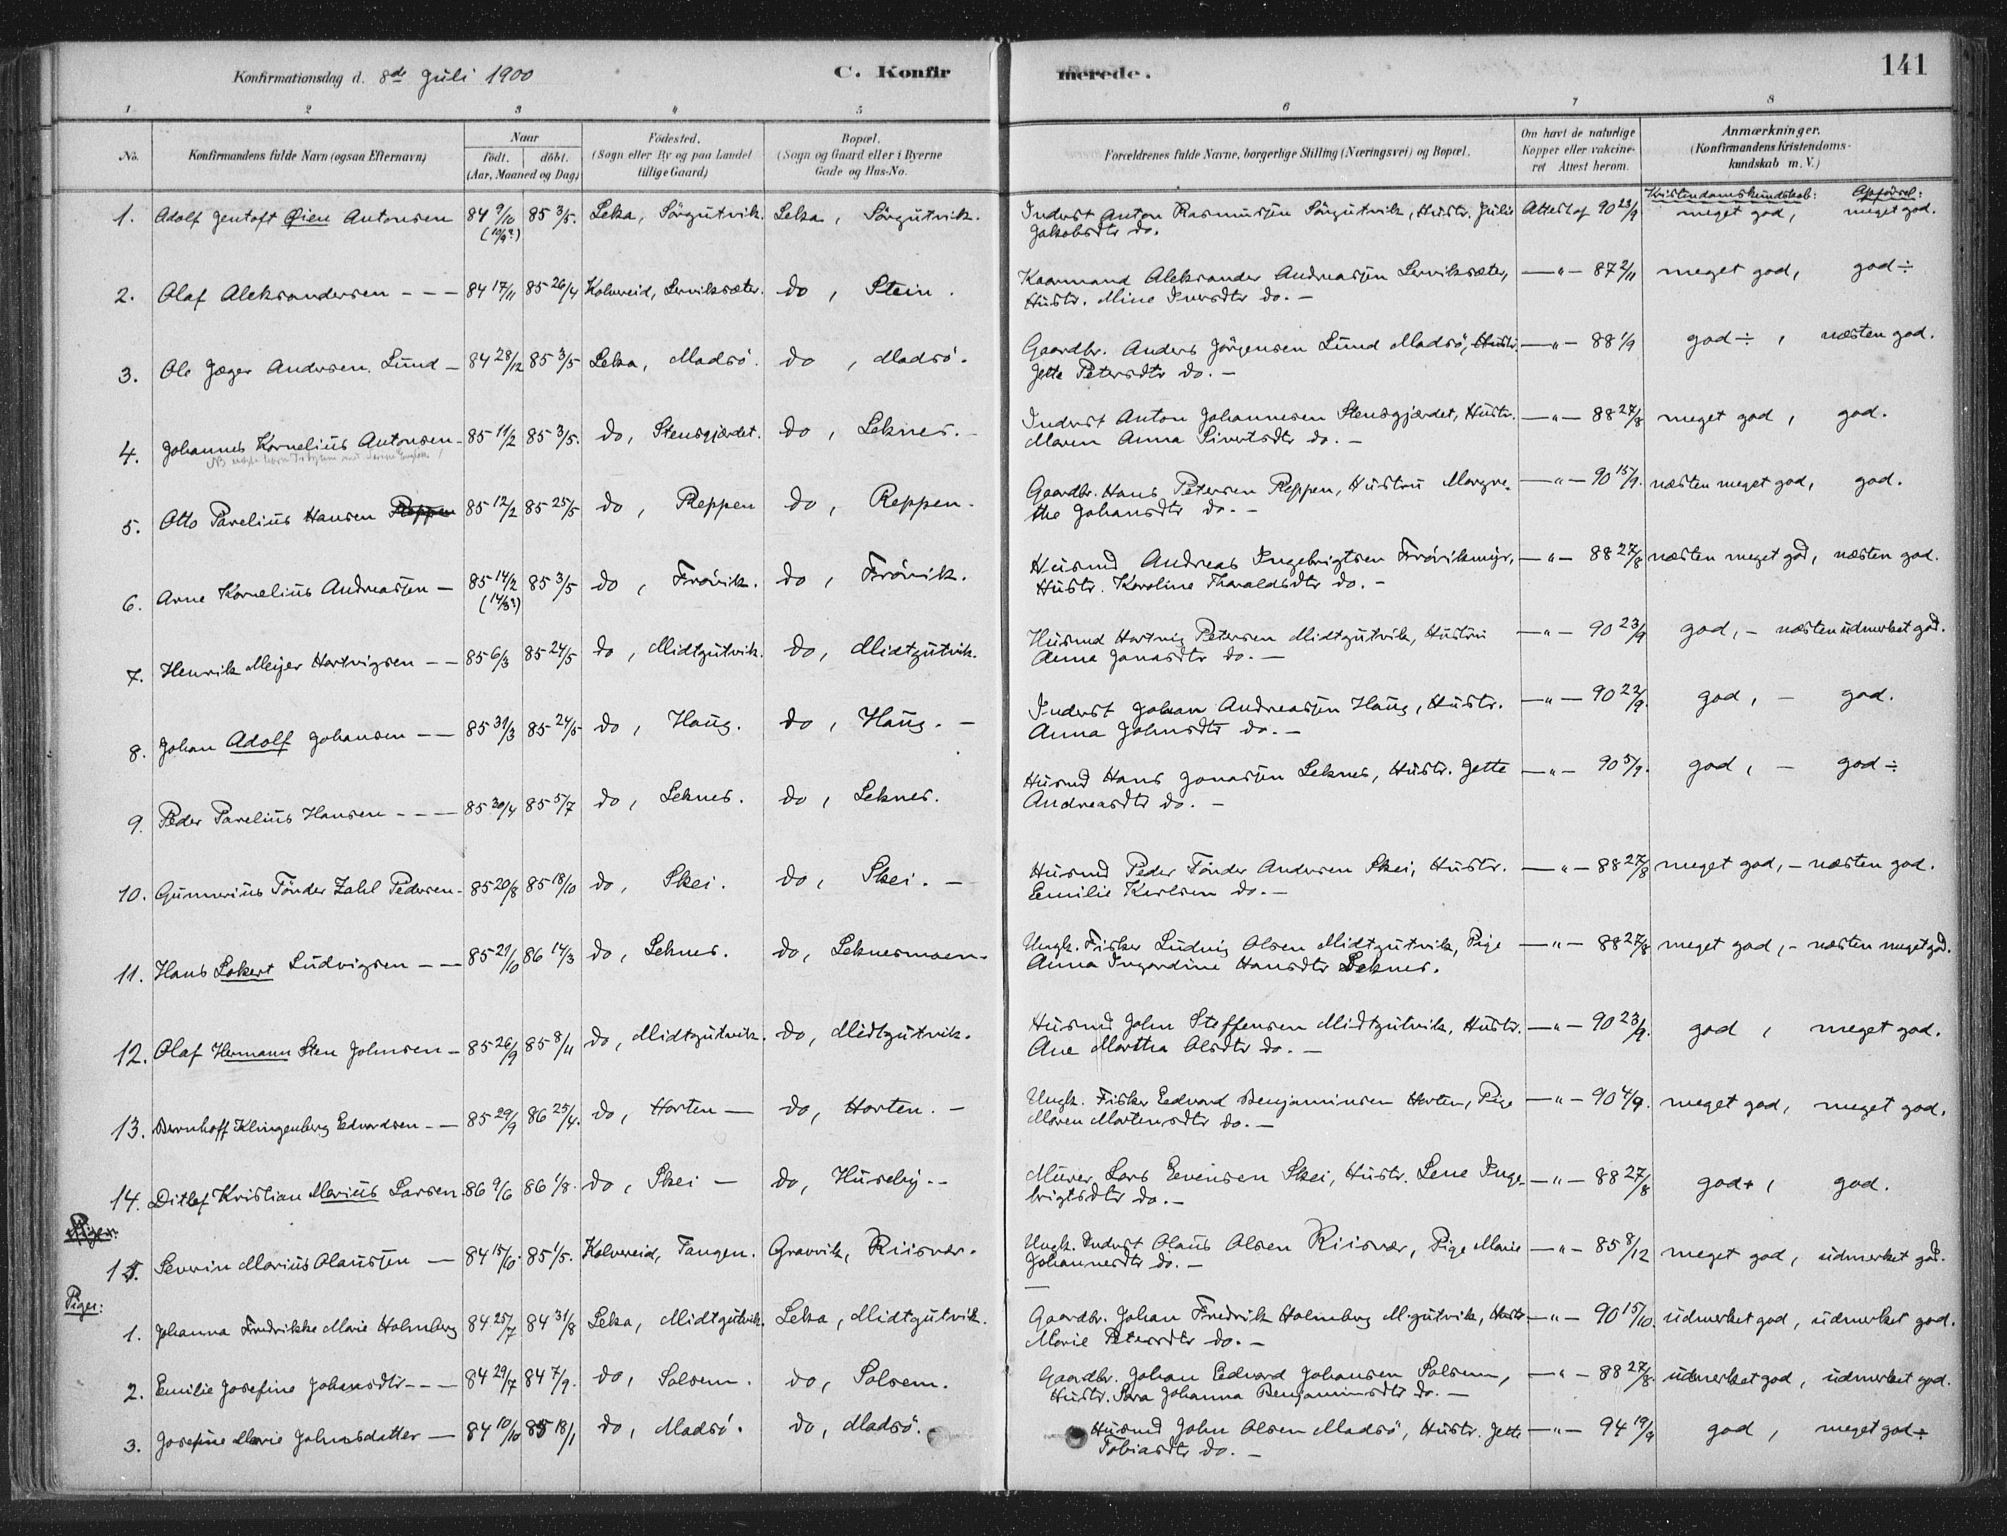 Konfirmationsdag d. 8de Juli 1900
C. Konfirmerede.
141
1 2 3 4 5 6 7 8
No.
Konfirmandens fulde Navn (ogsaa Efternavn)
Naar
födt. döbt.
(Aar, Maaned og Dag)
Födested.
(Sogn eller By og paa Landet tillige Gaard)
Bopæl.
(Sogn og Gaard eller i Byerne Gade og Hus-No.
Forældrenes fulde Navne, borgerlige Stilling (Næringsvei) og Bopæl.
Om havt de naturlige Kopper eller vakcineret Attest herom.
Anmærkninger.
(Konfirmandens Kristendomskundskab m. V.)
Kristendomskundskab: Opförsel:
1. Adolf Gentoft Øien Antonsen 84 9/10 (10/9?) 85 3/5. Leka, Sörgutvik. Leka, Sörgutvik. Inderst Anton Rasmussen Sörgutvik, Hustr. Julie Jakobsdtr do. Attest af 90 23/9 meget god, meget god.
2. Olaf Aleksandersen - - - 84 17/11 85 26/4 Kolvereid, Lerviksæter. do, Stein. Kaarmand Aleksander Andreassen Lerviksæter, Hustr. Mine Iversdtr do. — — " — 87 2/11 meget god, god ÷
3. Ole Jæger Andersen Lund — 84 28/12 85 3/5 Leka, Madsö. do, Madsö. Gaardbr. Anders Jörgensen Lund Madsö, Hustr. Jette Petersdtr do. — — " — 88 1/9 god ÷, næsten god.
4. Johannes Kornelius Antonsen — 85 11/2 85 3/5. do, Stensgjærdet. do, Leknes. — Inderst Anton Johannesen Stensgjærdet, Hustr. Maren Anna Sivertsdtr do. — — " — 88 27/8 meget god, god.
5. Otto Parelius Hansen Reppen 85 12/2 85 25/5 do, Reppen do, Reppen. Gaardbr. Hans Petersen Reppen, Hustru Margrethe Johansdtr do. — — " — 90 15/9. næsten meget god, god.
6. Arne Kornelius Andreassen — 85 14/2 (14/3?) 85 3/5 do, Frövik. do, Frövik. Husmd Andreas Ingebrigtsen Frövikmyr, Hustr. Karoline Tharaldsdtr do. — — " — 88 27/8 næsten meget god, næsten god.
7. Henrik Meijer Hartvigsen — — 85 6/3 85 24/5 do, Midtgutvik. do, Midtgutvik. Husmd Hartvig Petersen Midtgutvik, Hustru Anna Jonasdtr do. — — " — 90 23/9 god, — næsten udmerket god.
8. Johan Adolf Johansen — — 85 31/3 85 24/5 do, Haug. do, Haug. — Inderst Johan Andreassen Haug, Hustr. Anna Johnsdtr do. — — " — 90 22/9. god, — god.
9. Peder Parelius Hansen - - — 85 30/4 85 5/7 do, Leknes. do, Leknes. Husmd Hans Jonassen Leknes, Hustr. Jette Andreasdtr do. — — " — 90 5/9. god, — god ÷
10. Gunnerius Tönder Zahl Pedersen. 85 20/8 85 18/10 do, Skei. do, Skei. — Husmd Peder Tönder Andersen Skei, Hustr. Emilie Karlsen do. — — " — 88 27/8 meget god, — næsten god.
11. Hans Lokert Ludvigsen — — 85 21/10 86 14/3 do, Leknes. do, Leknesmoen. Ungk. Fisker Ludvig Olsen Midtgutvik, Pige Anna Ingardine Hansdtr Leknes. — " — 88 27/8 meget god, — næsten meget god.
12. Olaf Hermann Sten Johnsen — 85 26/9 85 8/11 do, Midtgutvik. do, Midtgutvik. Husmd John Steffensen Midtgutvik, Hustr. Ane Martha Olsdtr do. — — " — 90 23/9. god, meget god.
13. Bernhoff Klingenberg Edvardsen - — 85 29/9 86 25/4. do, Horten — do, Horten. — Ungk. Fisker Eedvard Benjaminsen Horten, Pige Maren Martensdtr do. — — " — 90 4/9. meget god, meget god.
14. Ditlef Kristian Marius Larsen 86 9/6 86 1/8. do, Skei — do, Huseby. — Murer Lars Eevensen Skei, Hustr. Lene Ingebrigtsdtr do. — — " — 88 27/8 god+, god.
Piger.
15. Severin Marius Olaussen — 84 15/10. 85 1/5. Kolvereid, Tangen. Gravvik, Riisvær. Ungk. Inderst Olaus Olsen Riisvær, Pige Marie Johannesdtr do. — — " — 85 8/12 meget god, udmerket god.
Piger:
1. Johanna Fredrikke Marie Holmberg 84 25/7 84 31/8 Leka, Midtgutvik. Leka, Midtgutvik. Gaardbr. Johan Fredrik Holmberg M.gutvik, Hustr. Marie Petersdtr do. — — " — 90 15/10. udmerket god, udmerket god.
2. Emilie Josefine Johansdtr - - — 84 29/7 84 7/9. do, Solsem. do, Solsem. Gaardbr. Johan Eedvard Johansen Solsem, Hustr. Sara Johanna Benjaminsdtr do. — — " — 88 27/8. udmerket god, udmerket god.
3. Josefine Marie Johnsdatter — 84 10/10 85 18/1 do, Madsö. do, Madsö. Husmd John Olsen Madsö, Hustr. Jette Tobiasdtr do. — — " — 94 19/9 god, meget god ÷